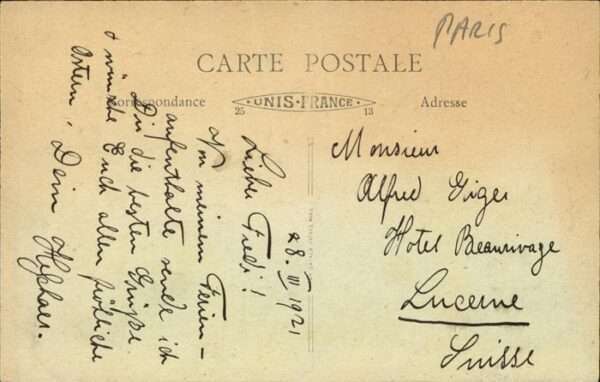 PARIS
CARTE POSTALE
Correspondance
25 UNIS-FRANCE 13
Adresse
28. III 1921
Lieber Fredi!
Von meinem Ferien-
aufenthalte sende ich
Dir die besten Grüße
& wünsche Euch allen fröhliche
Ostern, Dein
Monsieur
Alfred Giger
Hotel Beaurivage
Lucerne
Suisse